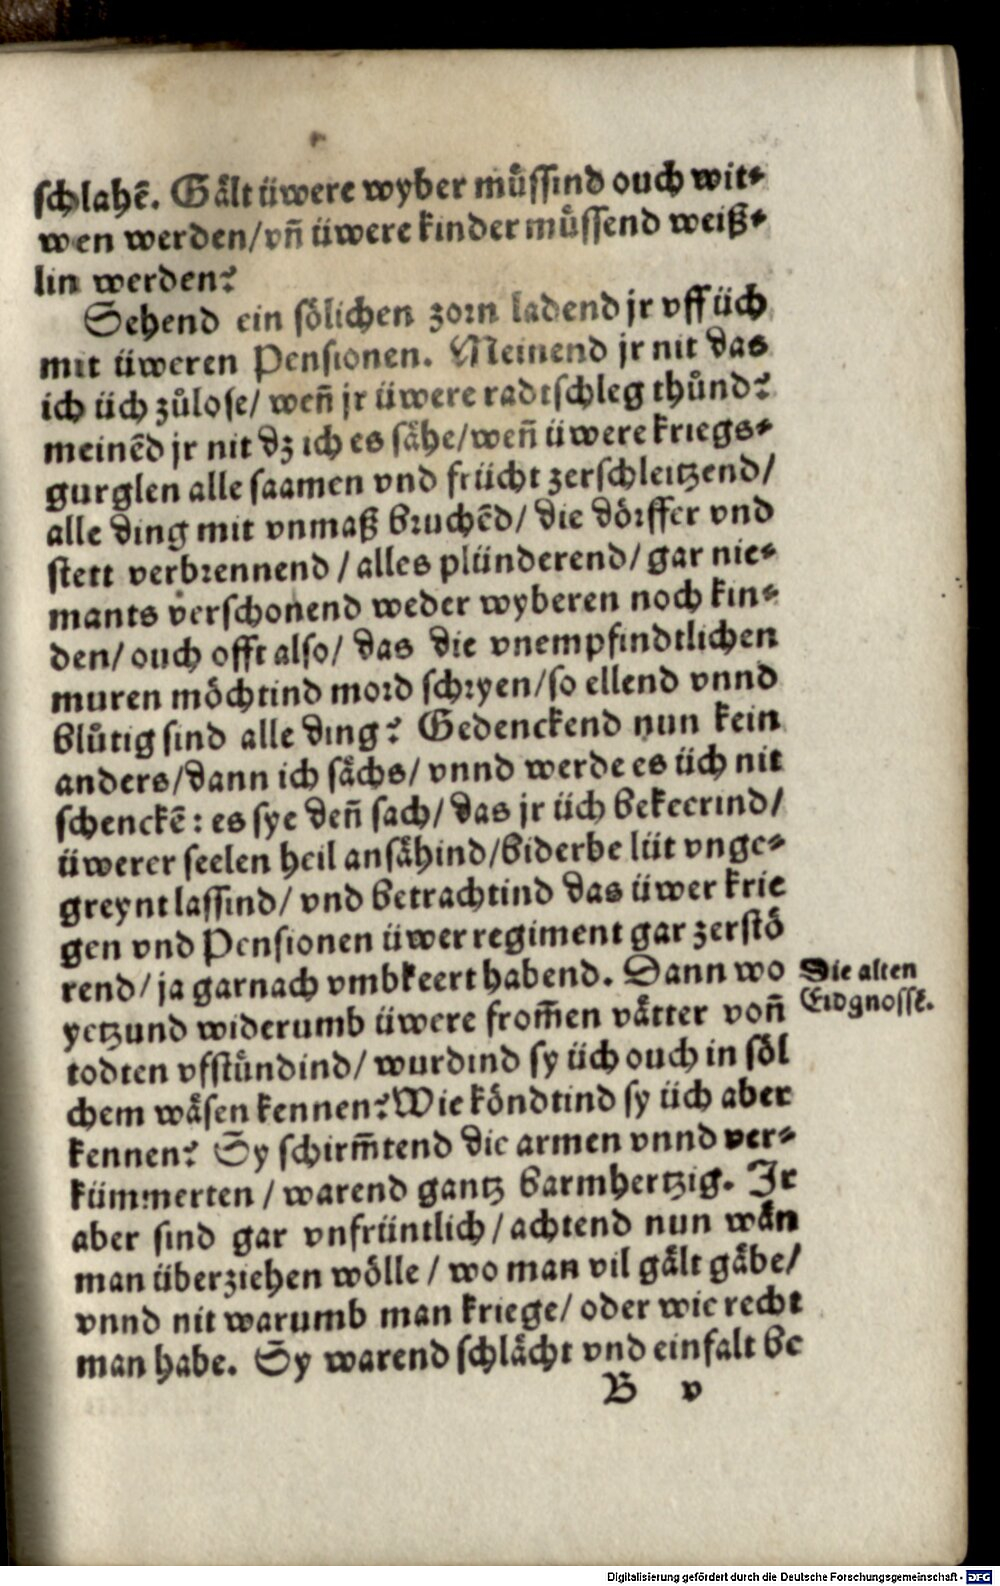 schlahẽ. Gält üwere wyber müssind ouch wit⸗
wen werden/vñ üwere kinder müssend weiß⸗
lin werden?
Sehend ein sölichen zorn ladend jr vff üch
mit üweren Pensionen. Meinend jr nit das
ich üch zůlose/ weñ jr üwere radtschleg thůnd?
meinẽd jr nit dz ich es sähe/weñ üwere kriegs⸗
gurglen alle saamen vnd frücht zerschleitzend/
alle ding mit vnmaß bruchẽd/ die dörffer vnd
stett verbrennend / alles plünderend/ gar nie⸗
mants verschonend weder wyberen noch kin⸗
den/ ouch offt also/ das die vnempfindtlichen
muren möchtind mord schryen/so ellend vnnd
blůtig sind alle ding? Gedenckend nun kein
anders/dann ich sächs/ vnnd werde es üch nit
schenckẽ: es sye deñ sach/ das jr üch bekeerind/
üwerer seelen heil ansähind/biderbe lüt vnge⸗
greynt lassind/ vnd betrachtind das üwer krie
gen vnd Pensionen üwer regiment gar zerstö
rend/ ja garnach vmbkeert habend. Dann wo
yetzund widerumb üwere from̃en vätter voñ
todten vfstůndind/ wurdind sy üch ouch in söl
chem wäsen kennen? Wie köndtind sy üch aber
kennen? Sy schirm̃tend die armen vnnd ver⸗
kümmerten / warend gantz barmhertzig. Jr
aber sind gar vnfrüntlich/ achtend nun wän
man überziehen wölle / wo man vil gält gäbe/
vnnd nit warumb man kriege/ oder wie recht
man habe. Sy warend schlächt vnd einfalt be
B v
Die alten
Eidgnossẽ.
Digitalisierung gefördert durch die Deutsche Forschungsgemeinschaft - DFG